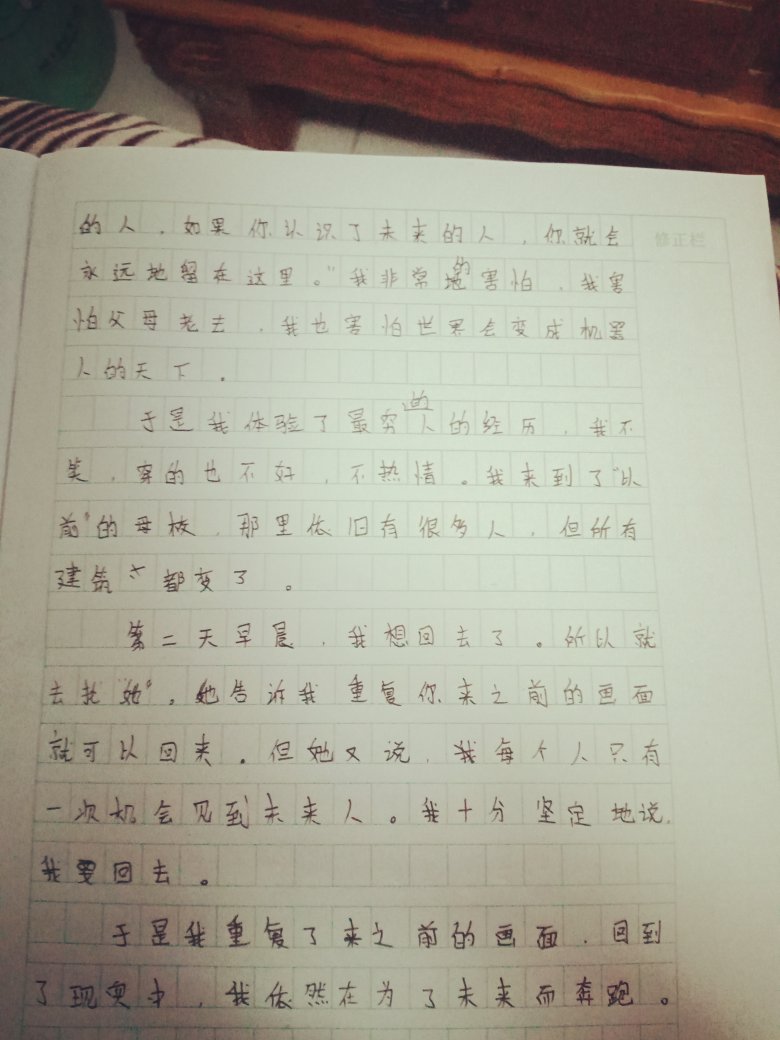 的人，如果你认识了未来的人，你就会
修正栏
永远地留在这里。"我非常地的害怕，我害
怕父母老去，我也害怕世界会变成机器
人的天下。
于是我体验了最穷的人的经历，我不
笑，穿的也不好，不热情。我来到了"以
前"的母校，那里依旧有很多人，但所有
建筑都变了。
第二天早晨，我想回去了。所以就
去找"她"。她告诉我重复你来之前的画面
就可以回来。但她又说，我每个人只有
一次机会见到未来人。我十分坚定地说，
我要回去。
于是我重复了来之前的画面，回到
了现实中，我依然在为了未来而奔跑。